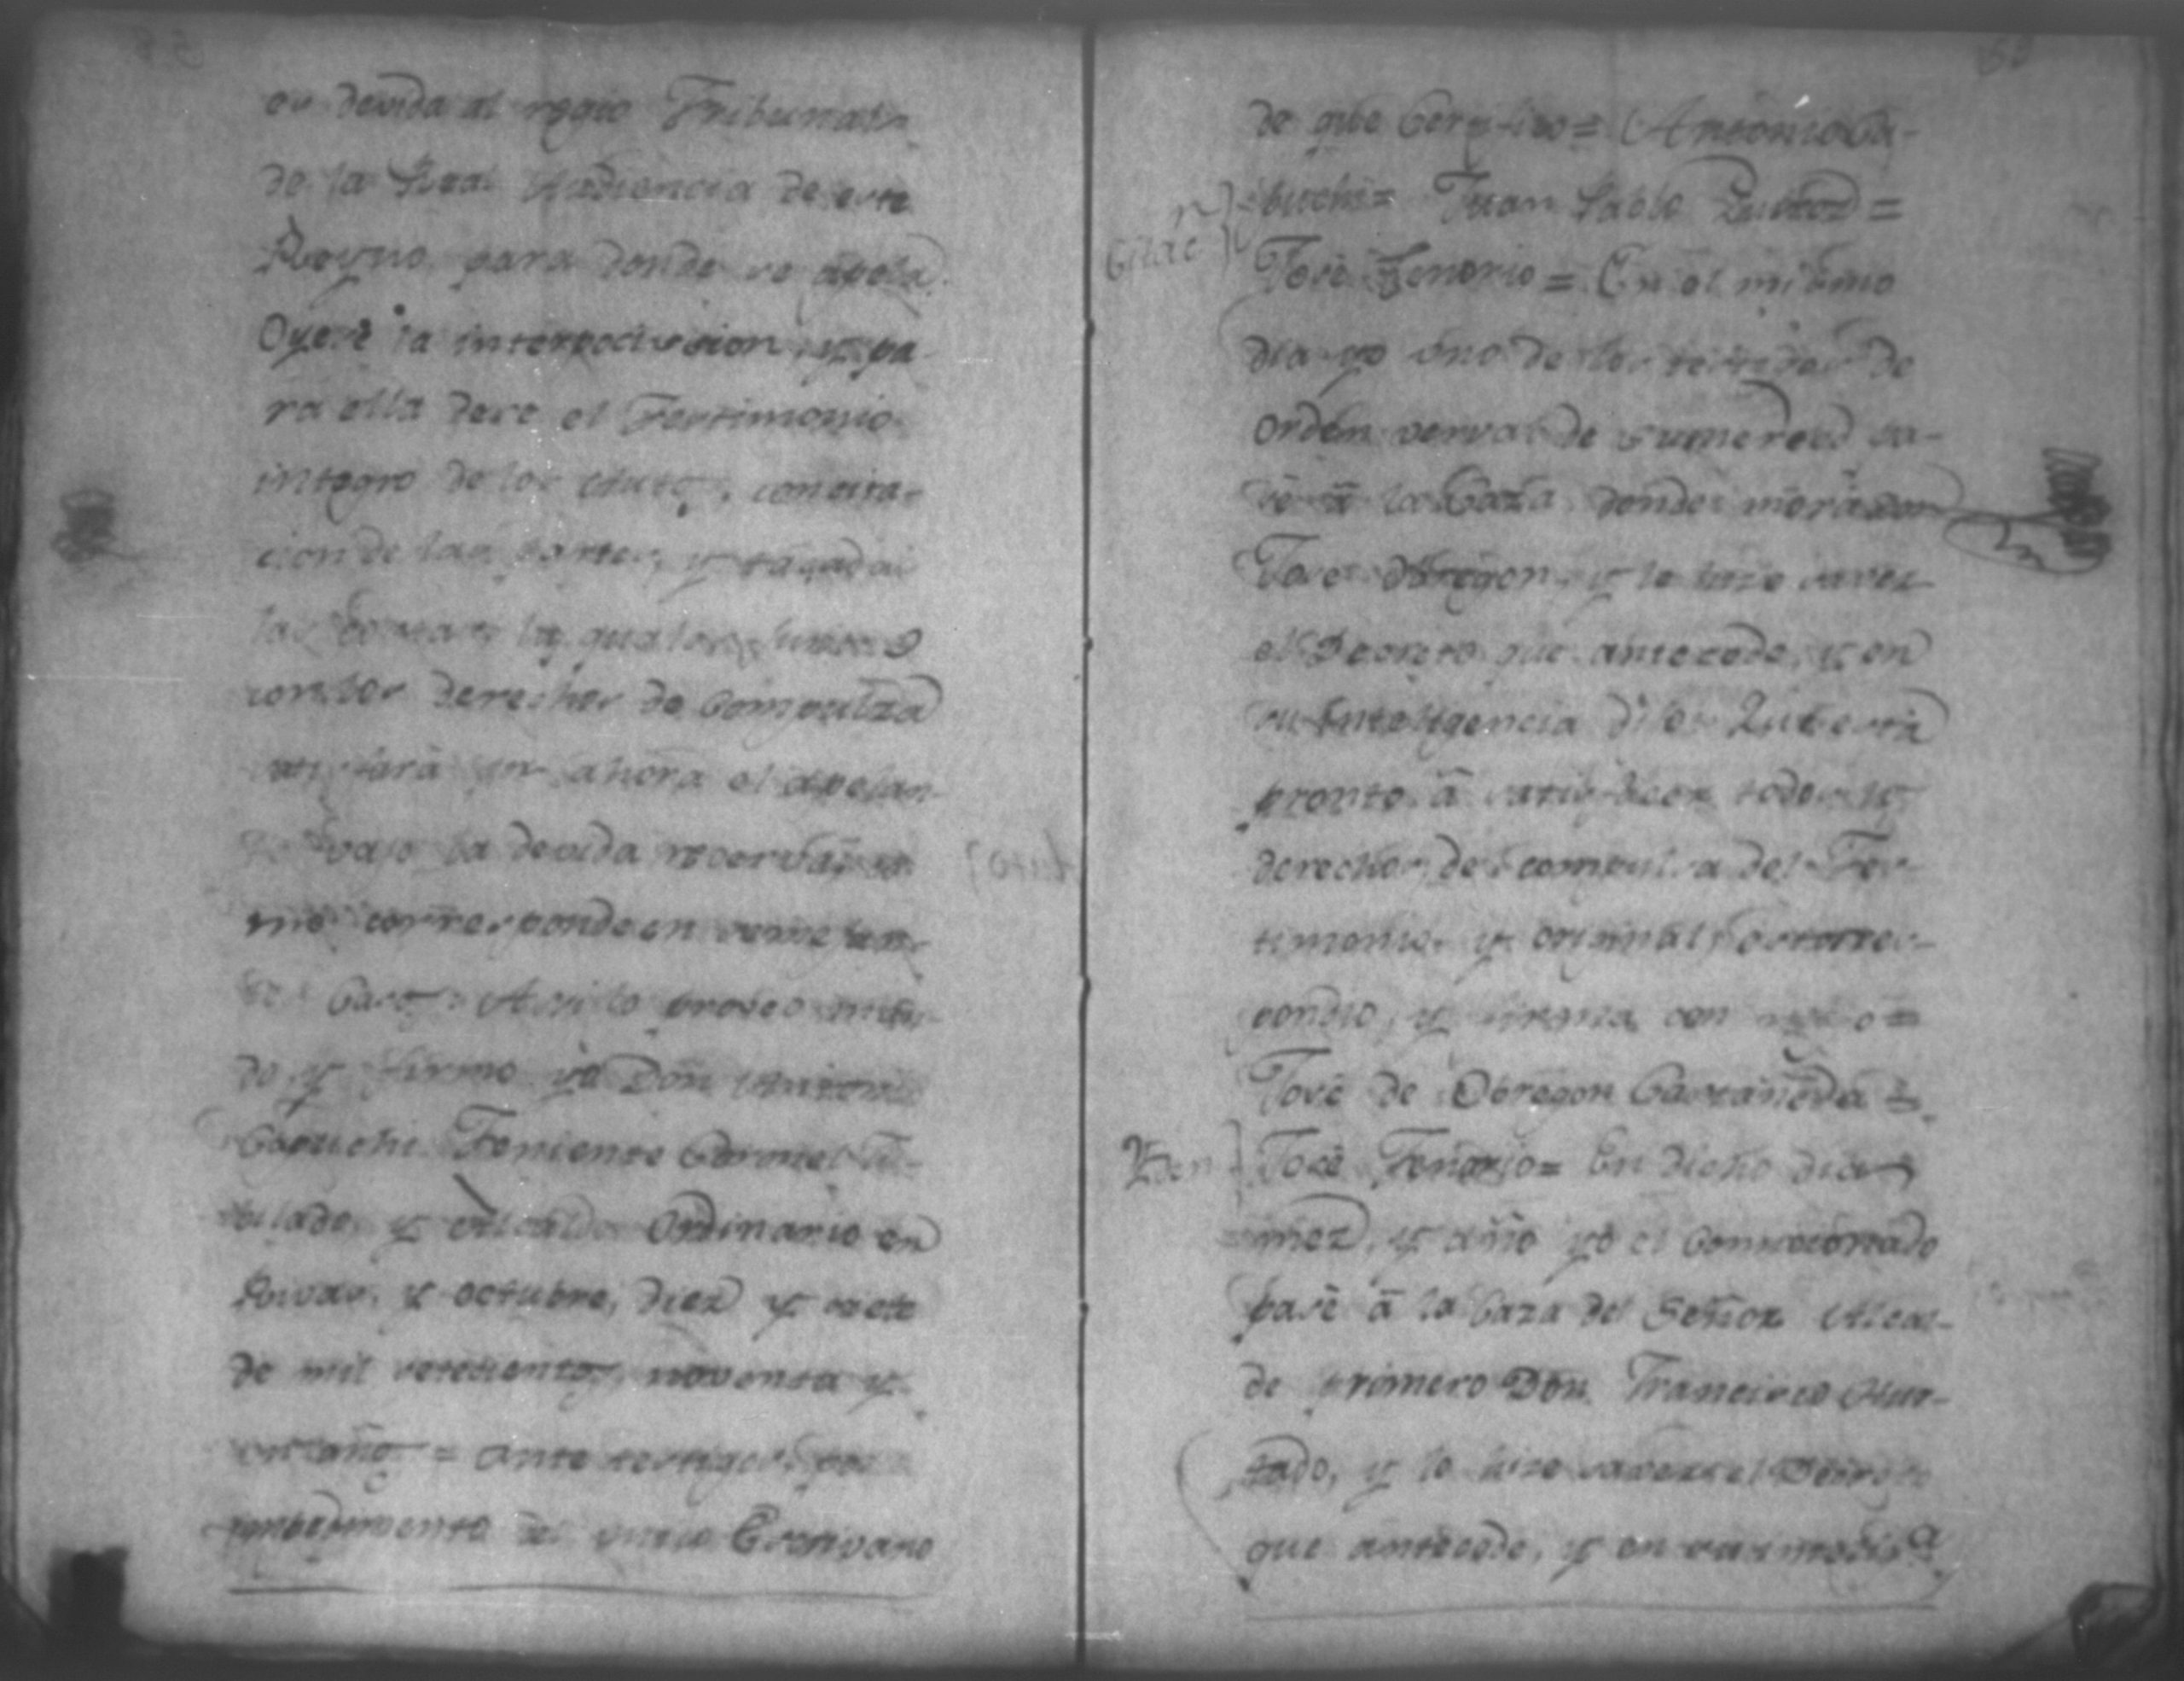 es devida al regio Tribunal
de la Real Audiencia de este
Reyno para donde se apela
Oyese la interpocission, y pa
ra ella dese el Testimonio
integro de los Autos, con cita-
cion de las partes, y tasadas
las costas, las quales juntas
con los derechos de Compulza
satisfará por ahora el apelan-
te vajo la devida reserva
me corresponde en semejan-
tes Casos. Asi lo proveo man-
do, y firmo yo Don Antonio
Capuchi Teniente Coronel
y Alcalde Ordinario en
Povdad, y octubre, diez y siete
de mil setecientos noventa y
un años = ante testigos por
impedimento del unico Escrivano
de que Certifico = Antonio Ca-
puchi = Juan Pablo Quiroz =
José Tenorio = En el mismo
dia yo uno de los testigos de
orden verval de su merced pa-
sé á la Caza donde mora Don
Jose Obregon, y le hize saver
el Decreto que antecede, y en
su inteligencia dijo: Que está
pronto á satisfacer todos los
derechos de compulsa del Tes-
timonio y original; esto res-
pondio, y firma con migo =
José de Obregon Castañeda =
José Tenorio = En dicho dia
mez, y año yo el Comicionado
pasé á la Caza del Señor Alcal-
de primero Don Francisco Hur-
tado, y le hize saver el Decreto
que antecede, y en su